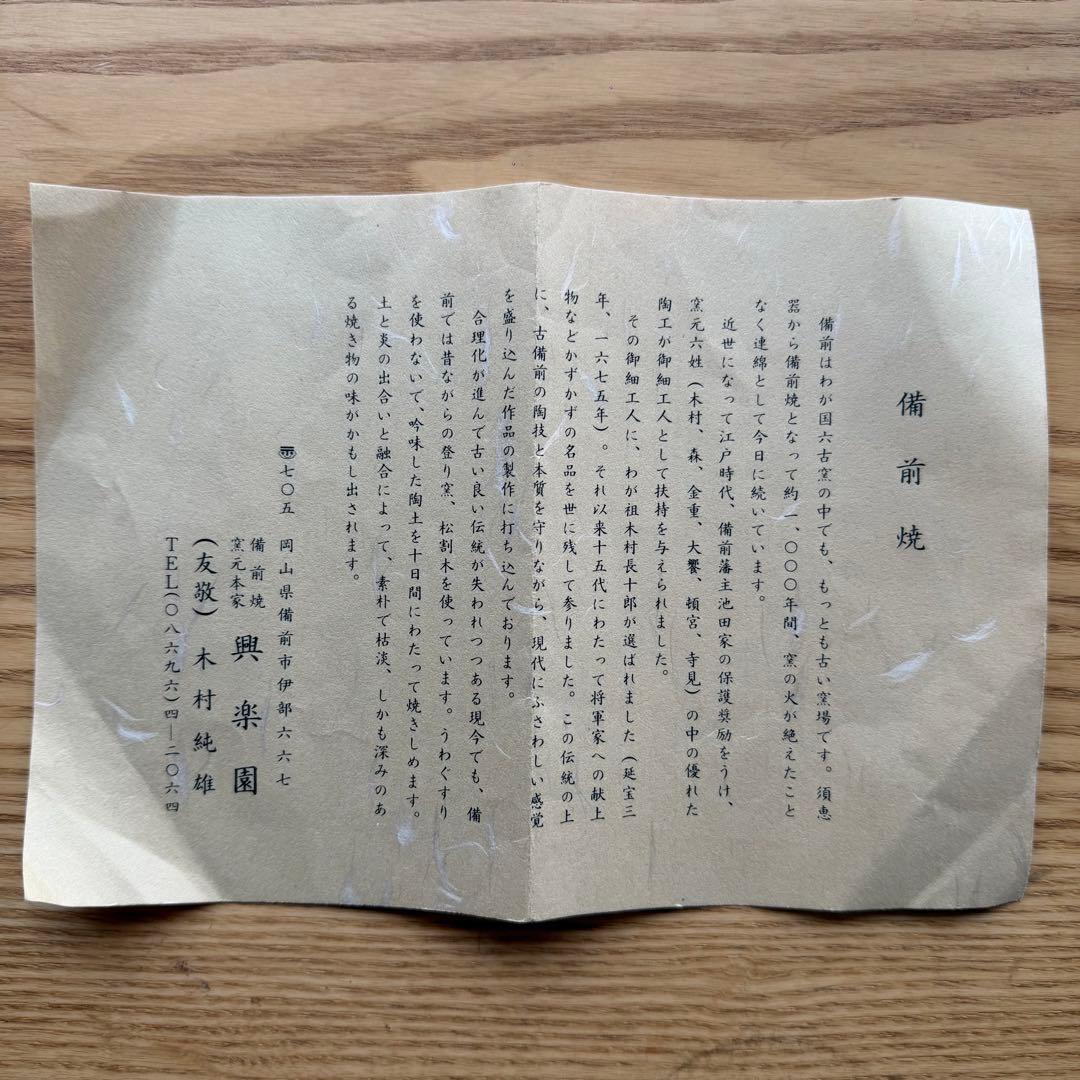 備前焼
備前はわが国六古窯の中でも、もっとも古い窯場です。須恵
器から備前焼となって約一、〇〇〇年間、窯の火が絶えたこと
なく連綿として今日に続いています。
近世になって江戸時代、備前藩主池田家の保護奨励をうけ、
窯元六姓（木村、森、金重、大饗、頓宮、寺見）の中の優れた
陶工が御細工人として扶持を与えられました。
その御細工人に、わが祖木村長十郎が選ばれました（延宝三
年、一六七五年）。それ以来十五代にわたって将軍家への献上
物などかずかずの名品を世に残して参りました。この伝統の上
に、古備前の陶技と本質を守りながら、現代にふさわしい感覚
を盛り込んだ作品の製作に打ち込んでおります。
合理化が進んで古い良い伝統が失われつつある現今でも、備
前では昔ながらの登り窯、松割木を使っています。うわぐすり
を使わないで、吟味した陶土を十日間にわたって焼きしめます。
土と炎の出合いと融合によって、素朴で枯淡、しかも深みのあ
る焼き物の味がかもし出されます。
〠七〇五 岡山県備前市伊部六六七
備前焼
窯元本家 興楽園
（友敬）木村純雄
TEL(〇八六九六)四―二〇六四